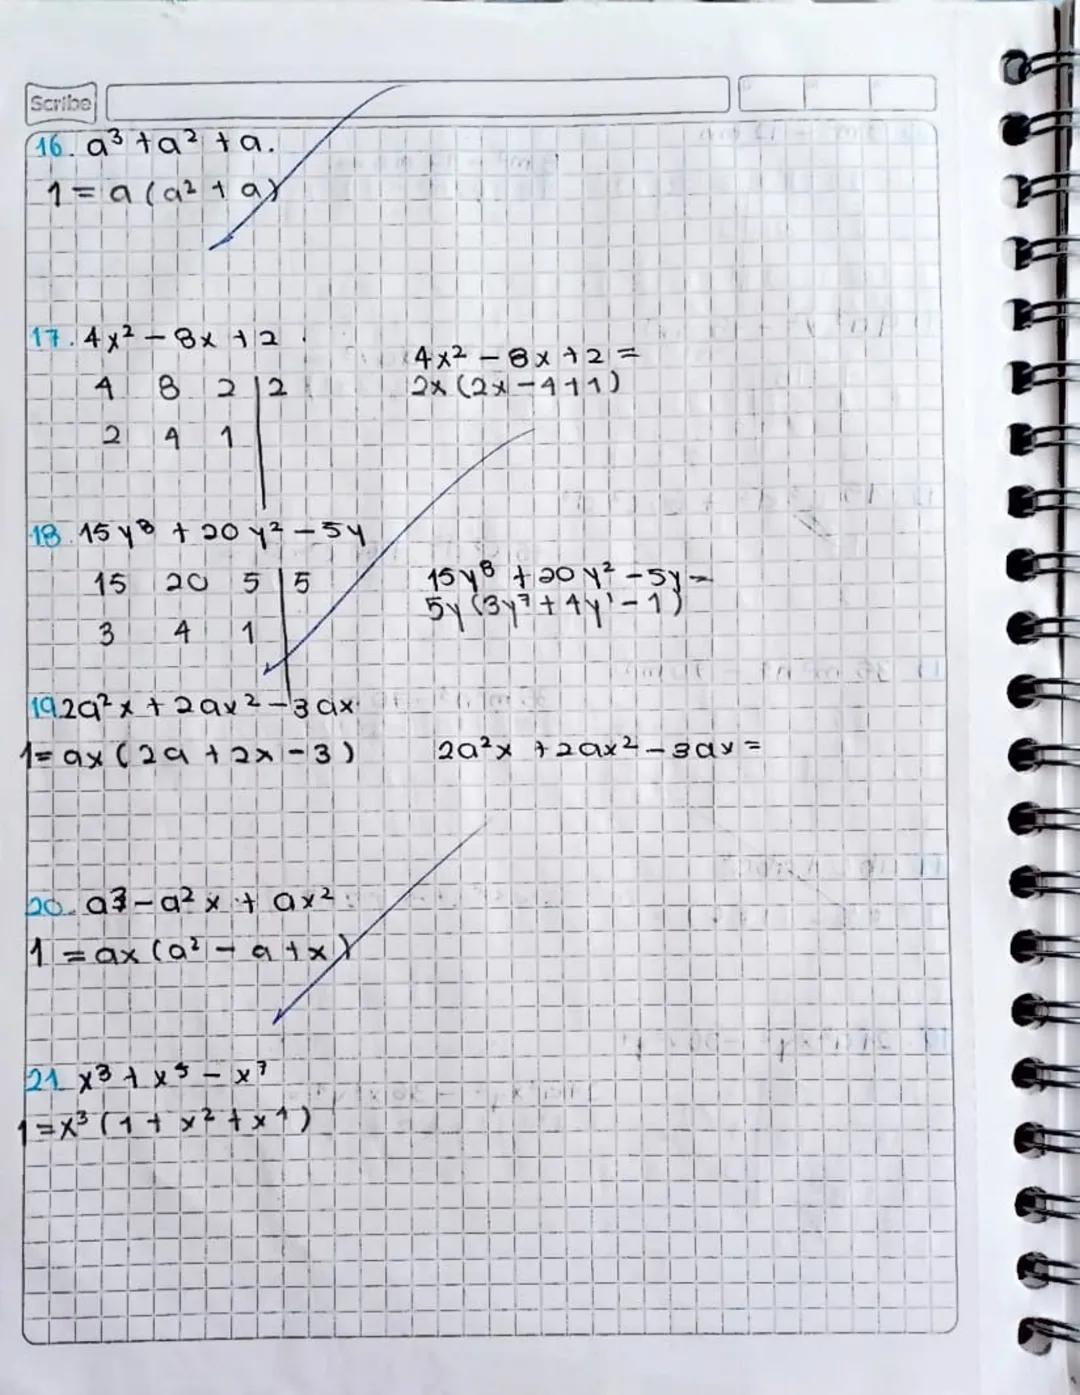 Scribe
16. a³ + a² + a.
1 = a (a² + a)
17. 4x² - 8x + 2
4 8 2 | 2
2 4 1
4x² - 8x + 2 =
2x (2x - 4 + 1)
18. 15y⁸ + 20y² - 5y
15 20 5 | 5
3 4 1
15y⁸ + 20y² - 5y =
5y (3y⁷ + 4y¹ - 1)
19. 2a²x + 2ax² - 3ax
1 = ax (2a + 2x - 3)
2a²x + 2ax² - 3ax =
20. a3 - a²x + ax²
1 = ax (a² - a + x)
21. x³ + x⁵ - x⁷
1 = x³ (1 + x² + x⁴)